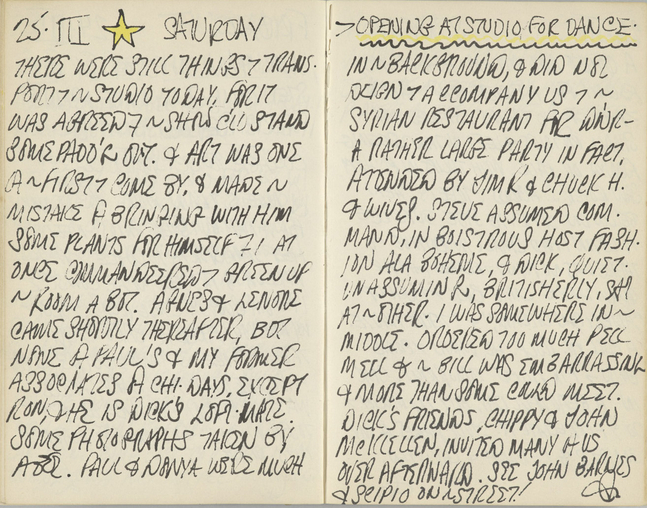 25. III ☆ SATURDAY
THERE WERE STILL THINGS 7 TRANS-
PORT 7 ~ STUDIO TODAY, FOR IT
WAS AGREED 7 ~ SHOW CLD STAND
SOME PADD'G OUT. & ART WAS ONE
~ FIRST 7 COME BY, & MADE ~
MISTAKE BRINGING WITH HIM
SOME PLANTS FOR HIMSELF 7 I AT
ONCE COMMANDEERED 7 GREEN UP
~ ROOM A BIT. AGNES & LENORE
CAME SHORTLY THEREAFTER, BUT
NONE PAUL'S & MY FORMER
ASSOCIATES CHI. DAYS, EXCEPT
RON, & HE IS DICK'S LOFT-MATE.
SOME PHOTOGRAPHS TAKEN BY
PAUL & DANYA WERE MUCH
> OPENING AT STUDIO FOR DANCE.
IN ~ BACKGROUND, & DID NOT
DEIGN 7 ACCOMPANY US 7 ~
SYRIAN RESTAURANT FR DINR-
A RATHER LARGE PARTY IN FACT,
ATTENDED BY JIM R & CHUCK H.
& WIVES. STEVE ASSUMED COM-
MAND, IN BOISTROUS HOST FASH-
ION ALA BOHEME, & DICK, QUIET-
UNASSUMING, BRITISHERLY, SAT
AT ~ OTHER. I WAS SOMEWHERE IN ~
MIDDLE. ORDERED TOO MUCH PELL
MELL & ~ BILL WAS EMBARRASSING
& MORE THAN SOME COULD MEET.
DICK'S FRIENDS, CHIPPY & JOHN
McKLELLEN, INVITED MANY US
OVER AFTERWARD. SEE JOHN BARNES
& SCIPIO ON ~ STREET!